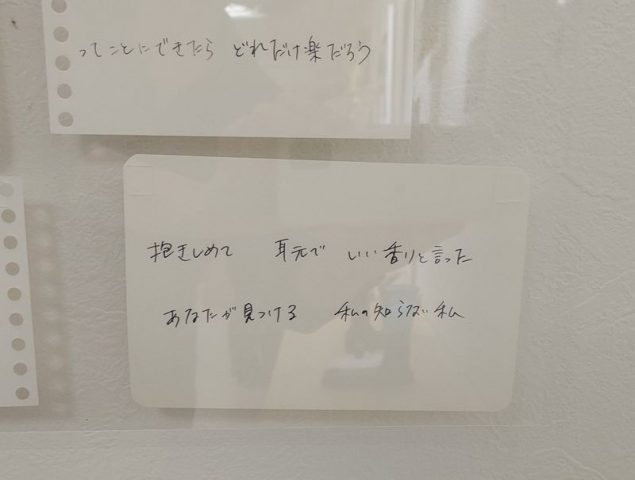 ってことにできたら どれだけ楽だろう
抱きしめて 耳元で いい香りと言った
あなたが見つける 私の知らない私